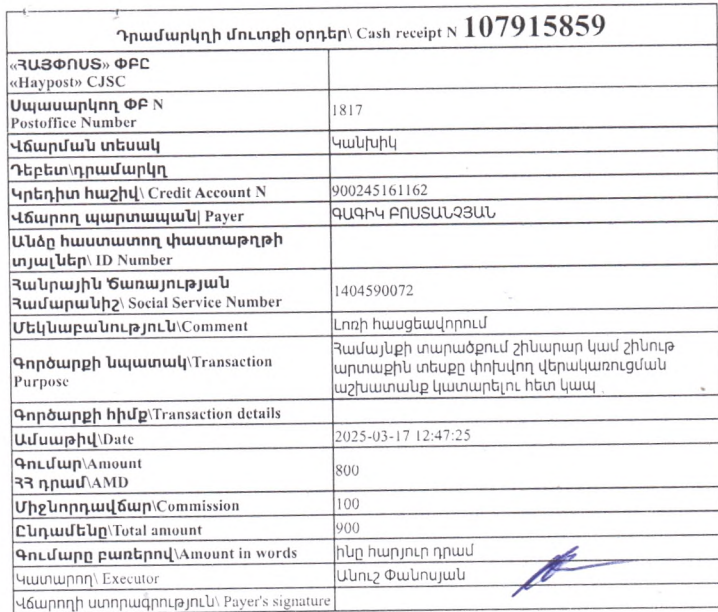 Դրամարկղի մուտքի օրդեր\ Cash receipt N 107915859
«ՀԱՅՓՈՍՏ» ՓԲԸ
«Haypost» CJSC
Սպասարկող ՓԲ N
Postoffice Number
1817
Վճարման տեսակ
Կանխիկ
Դեբետ\դրամարկղ
Կրեդիտ հաշիվ\ Credit Account N
900245161162
Վճարող պարտապան| Payer
ԳԱԳԻԿ ԲՈՍՏԱՆՉՅԱՆ
Անձը հաստատող փաստաթղթի
տյալներ\ ID Number
Հանրային Ծառայության
Համարանիշ\ Social Service Number
1404590072
Մեկնաբանություն\Comment
Լոռի հասցեավորում
Գործարքի նպատակ\Transaction
Purpose
Համայնքի տարածքում շինարար կամ շինութ
արտաքին տեսքը փոխվող վերակառուցման
աշխատանք կատարելու հետ կապ
Գործարքի հիմք\Transaction details
Ամսաթիվ\Date
2025-03-17 12:47:25
Գումար\Amount
ՀՀ դրամ\AMD
800
Միջնորդավճար\Commission
100
Ընդամենը\Total amount
900
Գումարը բառերով\Amount in words
ինը հարյուր դրամ
Կատարող\ Executor
Անուշ Փանոսյան
Վճարողի ստորագրություն\ Payer's signature